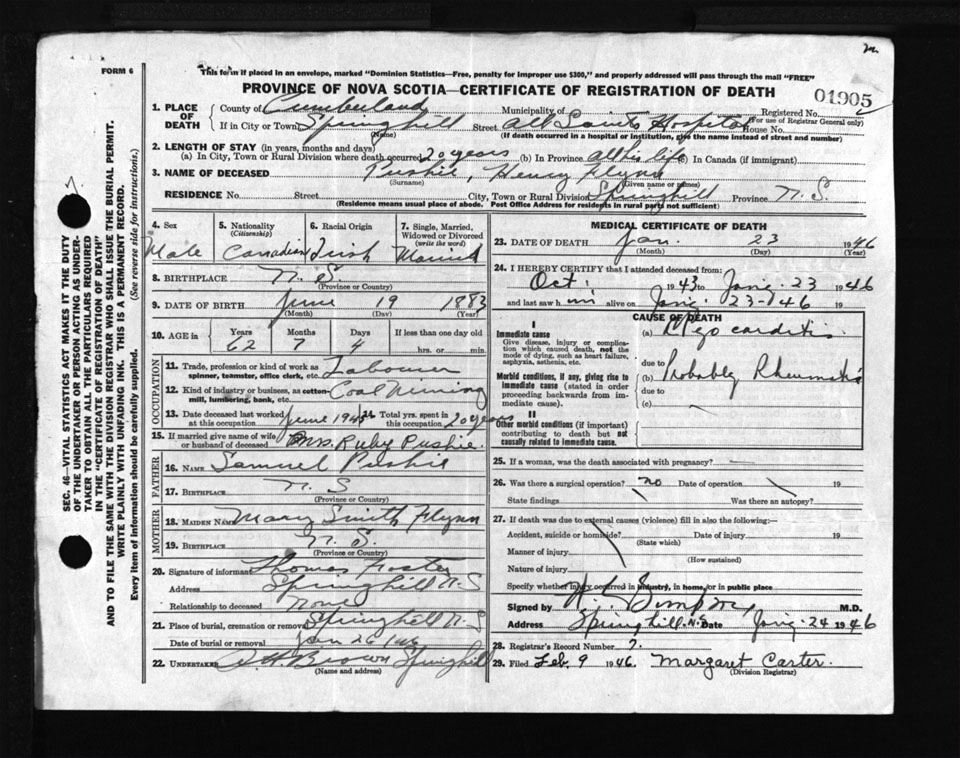 m
FORM 6
This form if placed in an envelope, marked "Dominion Statistics—Free, penalty for improper use $300," and properly addressed will pass through the mail "FREE"
PROVINCE OF NOVA SCOTIA—CERTIFICATE OF REGISTRATION OF DEATH
01905
1. PLACE OF DEATH County of Cumberland Municipality of Registered No. (For use of Registrar General only)
If in City or Town Springhill (Name) Street All Saints Hospital House No.
(If death occurred in a hospital or institution, give the name instead of street and number)
2. LENGTH OF STAY (in years, months and days)
(a) In City, Town or Rural Division where death occurred 20 years (b) In Province all his life In Canada (if immigrant)
3. NAME OF DECEASED Pushie, Henry Flynn
(Surname) (Given name or names)
RESIDENCE No. Street City, Town or Rural Division Springhill Province N.S.
(Residence means usual place of abode. Post Office Address for residents in rural parts not sufficient)
4. Sex 5. Nationality (Citizenship) 6. Racial Origin 7. Single, Married, Widowed or Divorced (write the word)
Male Canadian Irish Married
8. BIRTHPLACE N.S
(Province or Country)
9. DATE OF BIRTH June 19 1883
(Month) (Day) (Year)
10. AGE in Years Months Days If less than one day old
62 7 4 hrs. or min.
OCCUPATION
11. Trade, profession or kind of work as spinner, teamster, office clerk, etc. Labourer
12. Kind of industry or business, as cotton mill, lumbering, bank, etc. Coal Mining
13. Date deceased last worked at this occupation June 1943 14. Total yrs. spent in this occupation 20 years
15. If married give name of wife or husband of deceased Mrs. Ruby Pushie.
FATHER
16. NAME Samuel Pushie
17. BIRTHPLACE N.S
(Province or Country)
MOTHER
18. MAIDEN NAME Mary Smith Flynn
19. BIRTHPLACE N.S.
(Province or Country)
20. Signature of informant Thomas Foster
Address Springhill N.S
Relationship to deceased None
21. Place of burial, cremation or removal Springhill N.S
Date of burial or removal Jan 26/46
22. UNDERTAKER Brown Springhill
(Name and address)
MEDICAL CERTIFICATE OF DEATH
23. DATE OF DEATH Jan. 23 1946
(Month) (Day) (Year)
24. I HEREBY CERTIFY that I attended deceased from:
Oct. 1943 to Jan. 23 1946
and last saw him alive on Jan. 23-46 19
CAUSE OF DEATH
I
Immediate cause
Give disease, injury or complication which caused death, not the mode of dying, such as heart failure, asphyxia, asthenia, etc.
(a) Myocarditis
due to
Morbid conditions, if any, giving rise to immediate cause (stated in order proceeding backwards from immediate cause).
(b) Probably Rheumatic
due to
(c)
II
Other morbid conditions (if important) contributing to death but not causally related to immediate cause.
25. If a woman, was the death associated with pregnancy?
26. Was there a surgical operation? no Date of operation 19
State findings Was there an autopsy?
27. If death was due to external causes (violence) fill in also the following:—
Accident, suicide or homicide? Date of injury 19
(State which)
Manner of injury
(How sustained)
Nature of injury
Specify whether injury occurred in industry, in home, or in public place
Signed by Simpson M.D.
Address Springhill, N.S. Date Jan. 24 1946
28. Registrar's Record Number 7.
29. Filed Feb. 9 1946. Margaret Carter.
(Division Registrar)
SEC. 46—VITAL STATISTICS ACT MAKES IT THE DUTY
OF THE UNDERTAKER OR PERSON ACTING AS UNDERTAKER
TO OBTAIN ALL THE PARTICULARS REQUIRED
IN THE "CERTIFICATE OF REGISTRATION OF DEATH"
AND TO FILE THE SAME WITH THE DIVISION REGISTRAR WHO SHALL ISSUE THE BURIAL PERMIT.
WRITE PLAINLY WITH UNFADING INK. THIS IS A PERMANENT RECORD.
Every item of information should be carefully supplied. (See reverse side for instructions.)